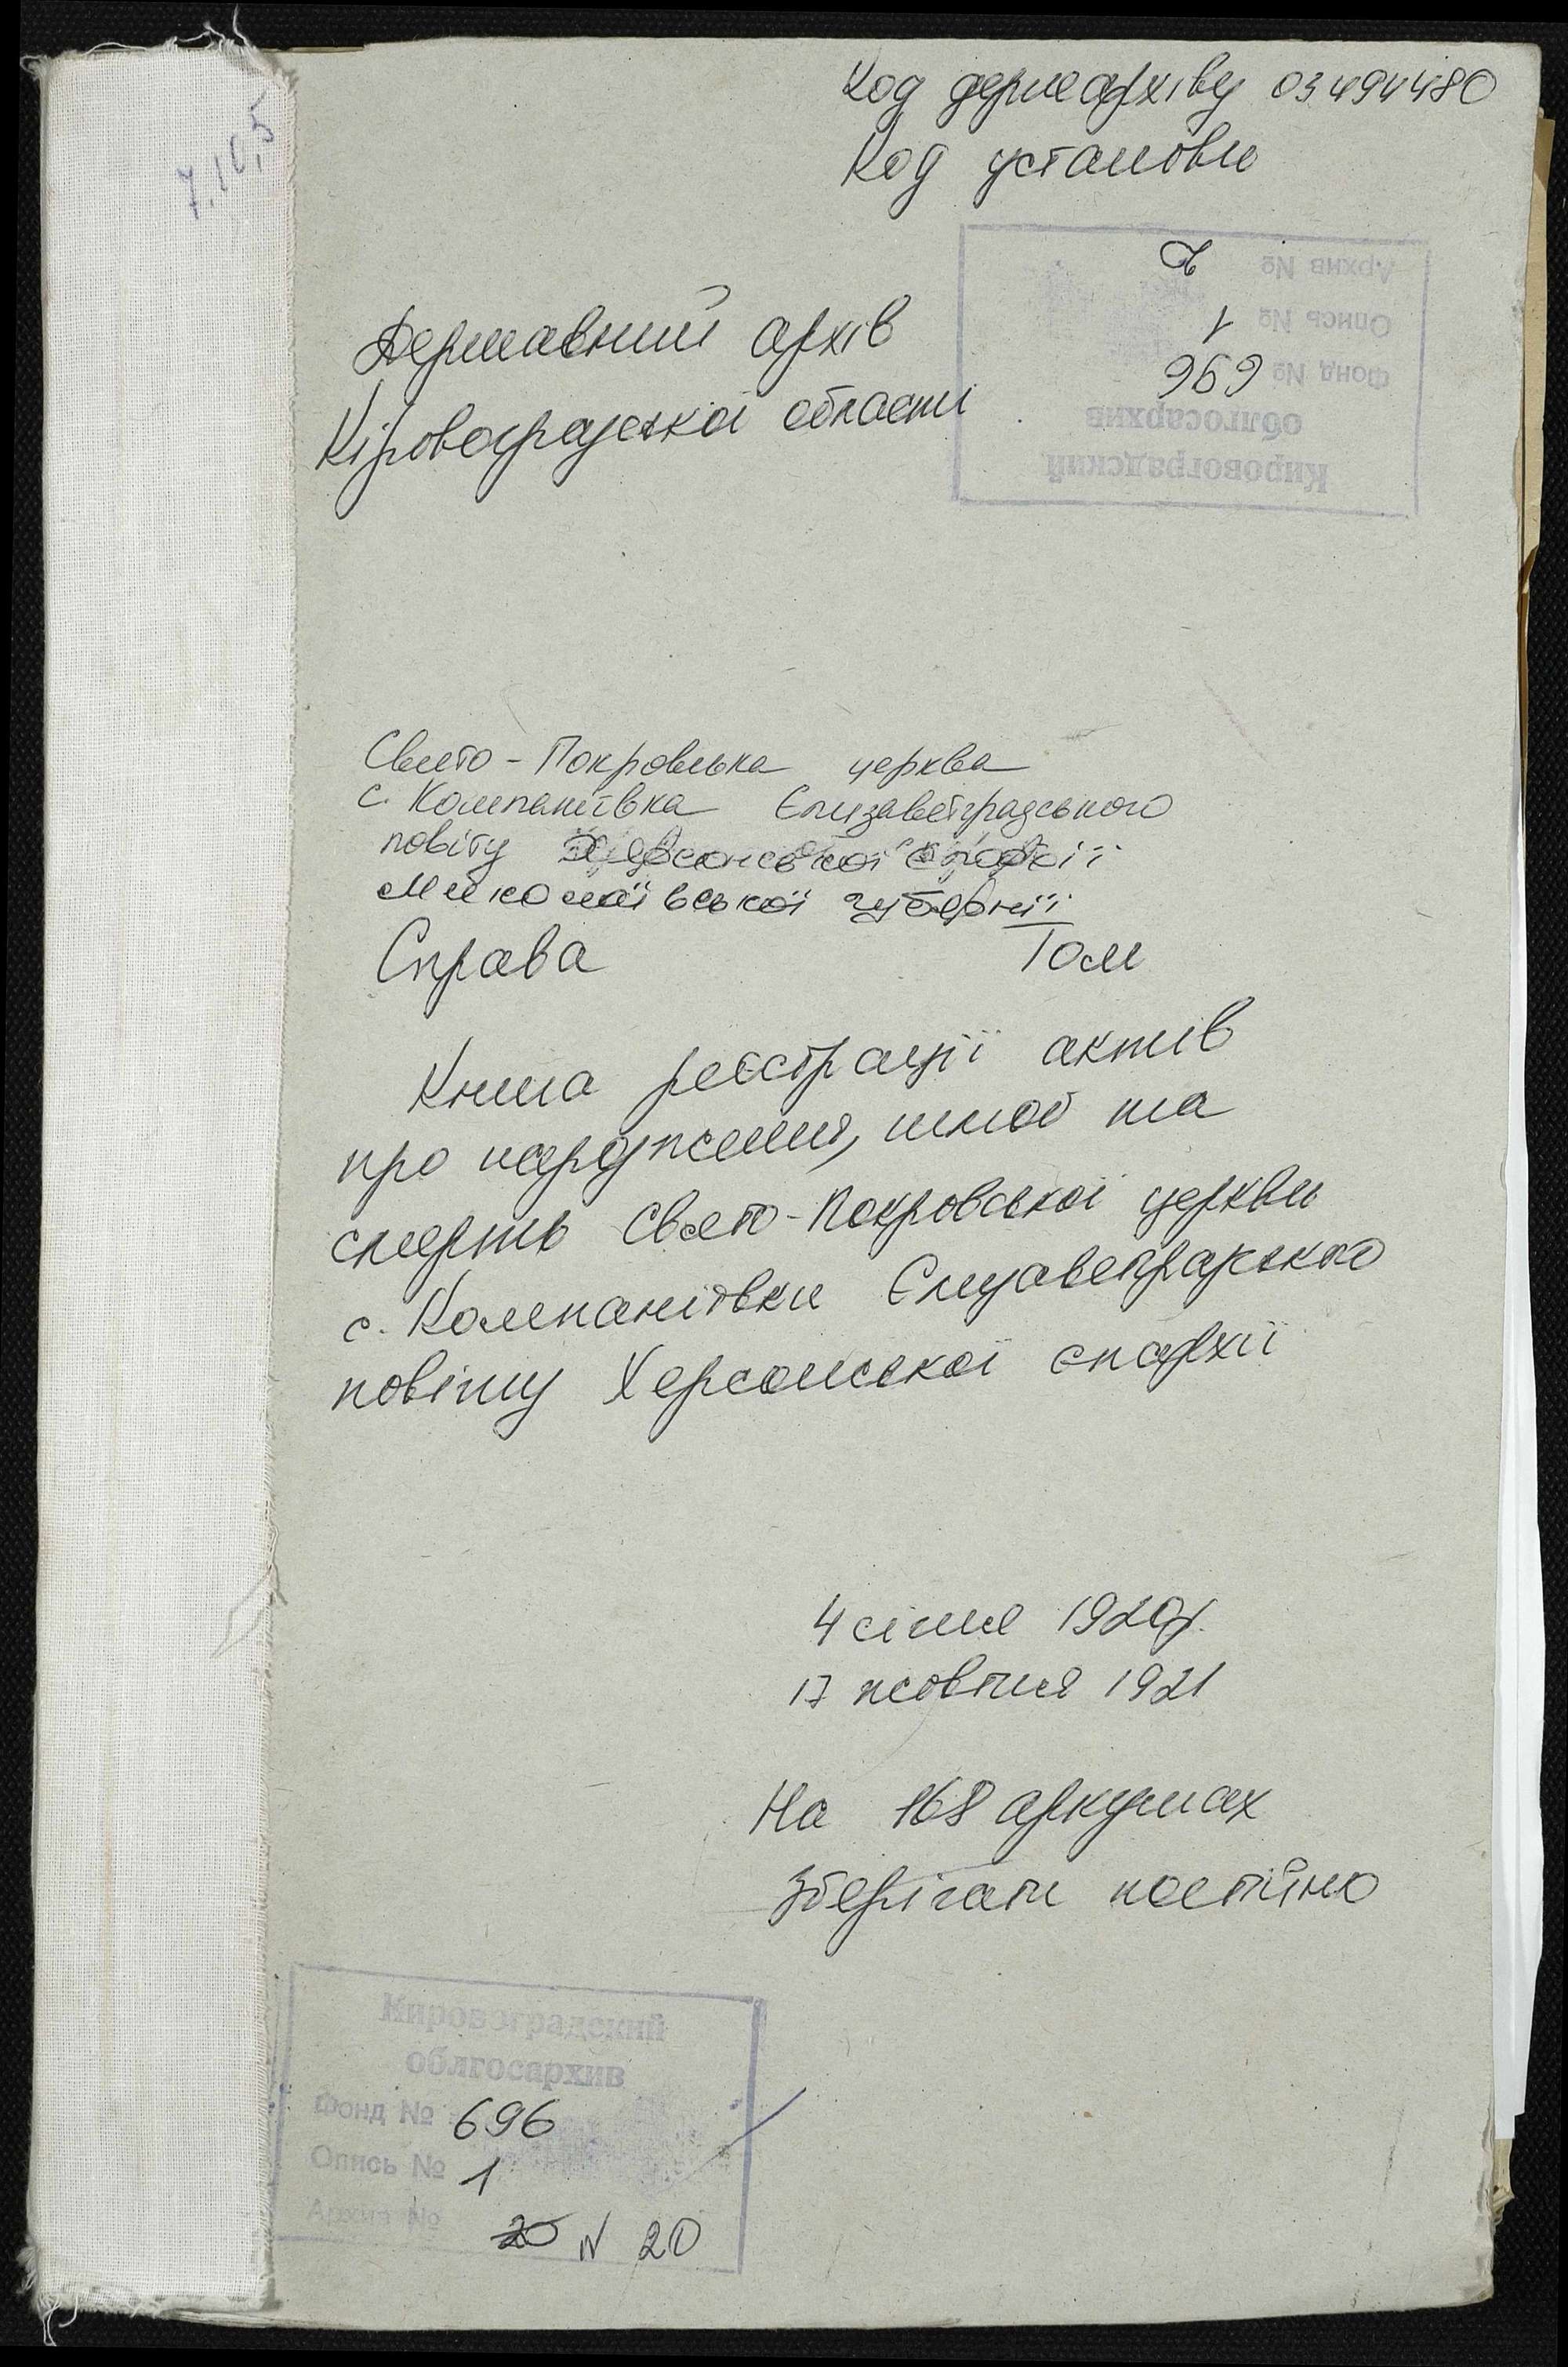 7.10,5
Код держархіву 03494480
Код установи
Кировоградский
облгосархив
Фонд № 696
Опись № 1
Архив №
Державний архів
Кіровоградської області
Свято-Покровська церква
с. Компаніївка Єлизаветградського
повіту Херсонської єпархії
Миколаївської губернії
Справа Том
Книга реєстрації актів
про народження, шлюб та
смерть Свято-Покровської церкви
с. Компаніївки Єлизаветградського
повіту Херсонської єпархії
4 січня 1920р.
17 жовтня 1921
На 168 аркушах
Зберігати постійно
Кировоградский
облгосархив
Фонд № 696
Опись № 1
Архив № 20 N 20